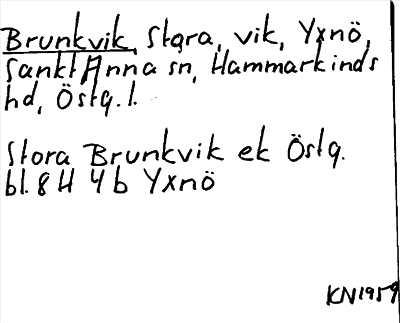 Brunkvik, Stora, vik, Yxnö,
Sankt Anna sn, Hammarkinds
hd, Östg. l.
Stora Brunkvik ek Östg.
bl. 8 H 4 b Yxnö
KN 1959